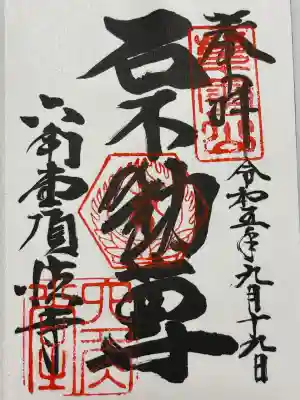 奉拝
令和五年九月十九日
石不動尊
六角堂頂法寺